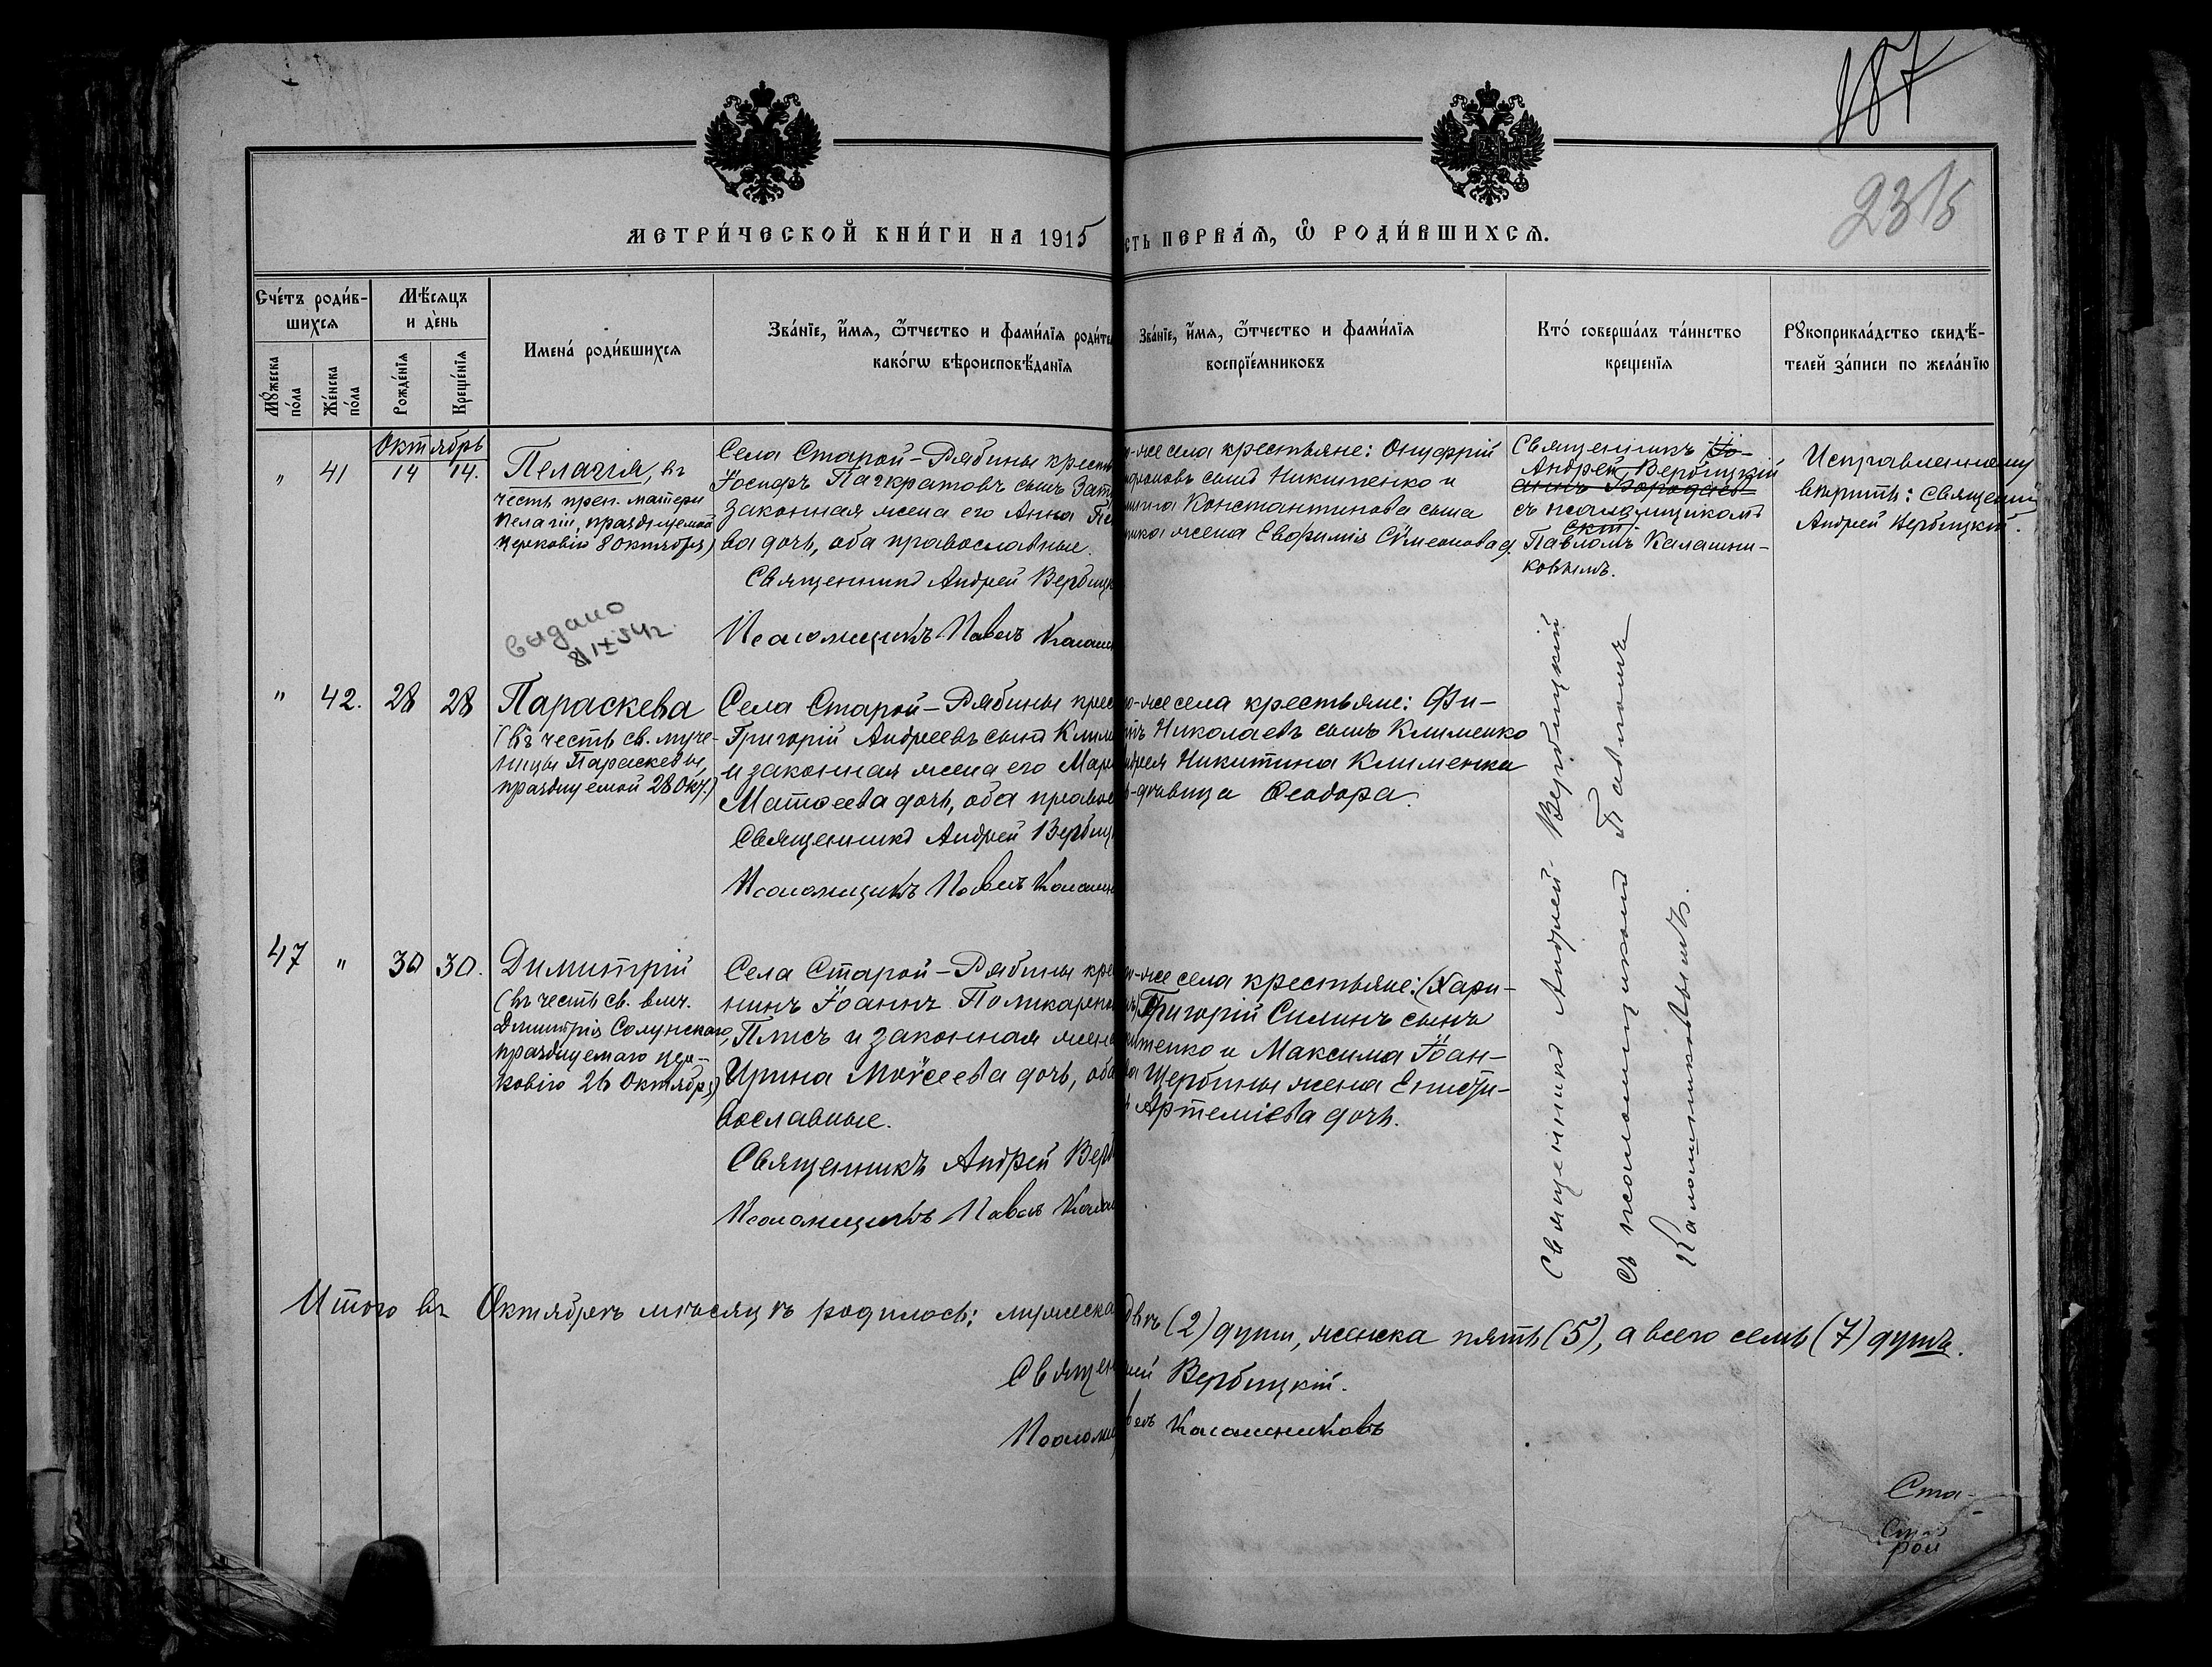 187
2315
МЕТРИ́ЧЕСКОЙ КНИ́ГИ НА 1915
СТЬ ПЕРВА́Ѧ, Ѽ РОДИ́ВШИХСѦ.
Сче́тъ роди́в-
шихся
Мꙋ́жеска по́ла
Же́нска по́ла
Мѣ́сяцъ
и де́нь
Рожде́нїя
Креще́нїя
Имена́ роди́вшихся
Зва́нїе, и́мя, ѻ́тчество и фами́лїя роди́те
како́гѡ вѣроисповѣ́данїя
Зва́нїе, и́мя, ѻ́тчество и фами́лїя
воспрїе́мниковъ
Кто́ соверша́лъ та́инство
креще́нїя
Рꙋкоприкла́дство свидѣ́-
телей за́писи по жела́нїю
Октябрь
" 41 14 14.
Пелагія, въ
честь преп. матери
Пелагіи, празднуемой
Церковію 8 Октября)
выдано
8/IX 54 г.
Села Старой-Рябины крест
Іосифъ Панкратовъ сынъ Зат
законная жена его Анна
ва дочь, оба православные.
Священникъ Андрей Вербицк
Псаломщикъ Павелъ Калаш
-же села крестьяне: Онуфрій
сынъ Никитенко и
Константинова сына
жена Евфимія Сѵмеонова д.
Священникъ Іо-
Андрей Вербицкій
аннъ
съ псаломщикомъ
Павломъ Калашни-
ковымъ.
Исправленному
вѣрить: Священник
Андрей Вербицкій.
" 42. 28 28
Параскева
(въ честь св. муче-
ницы Параскевы,
празднуемой 28 Окт.)
Села Старой-Рябины крес
Григорій Андреевъ сынъ Клим
и законная жена его Мар
Матѳеева дочь, оба правос
Священникъ Андрей Вербиц
Псаломщикъ Павелъ Калашн
-же села крестьяне: Фи-
Николаевъ сынъ Клименко
Никитина Клименка
-дѣвица Ѳеодора.
Священникъ Андрей Вербицкій
съ псаломщикомъ Павломъ
Калашниковымъ.
47 " 30 30.
Димитрій
(въ честь св. влмч.
Димитрія Солунскаго,
празднуемаго цер-
ковію 26 Октября)
Села Старой-Рябины кре
нинъ Іоаннъ Поликарпо
Плисъ и законная жена
Ирина Моѵсеева дочь, оба
вославные.
Священникъ Андрей Верб
Псаломщикъ Павелъ Калаш
-же села крестьяне: (Хари-
Григорій Силинъ сынъ
тенко и Максима Іоан-
ва Щербины жена Еписти-
Артеміева дочь.
Итого въ Октябрѣ мѣсяцѣ родилось: мужеска
двѣ (2) души, женска пять (5), а всего семь (7) душъ.
Священ
ей Вербицкій.
Псалом
велъ Калашниковъ
Ста-
Ста
рой